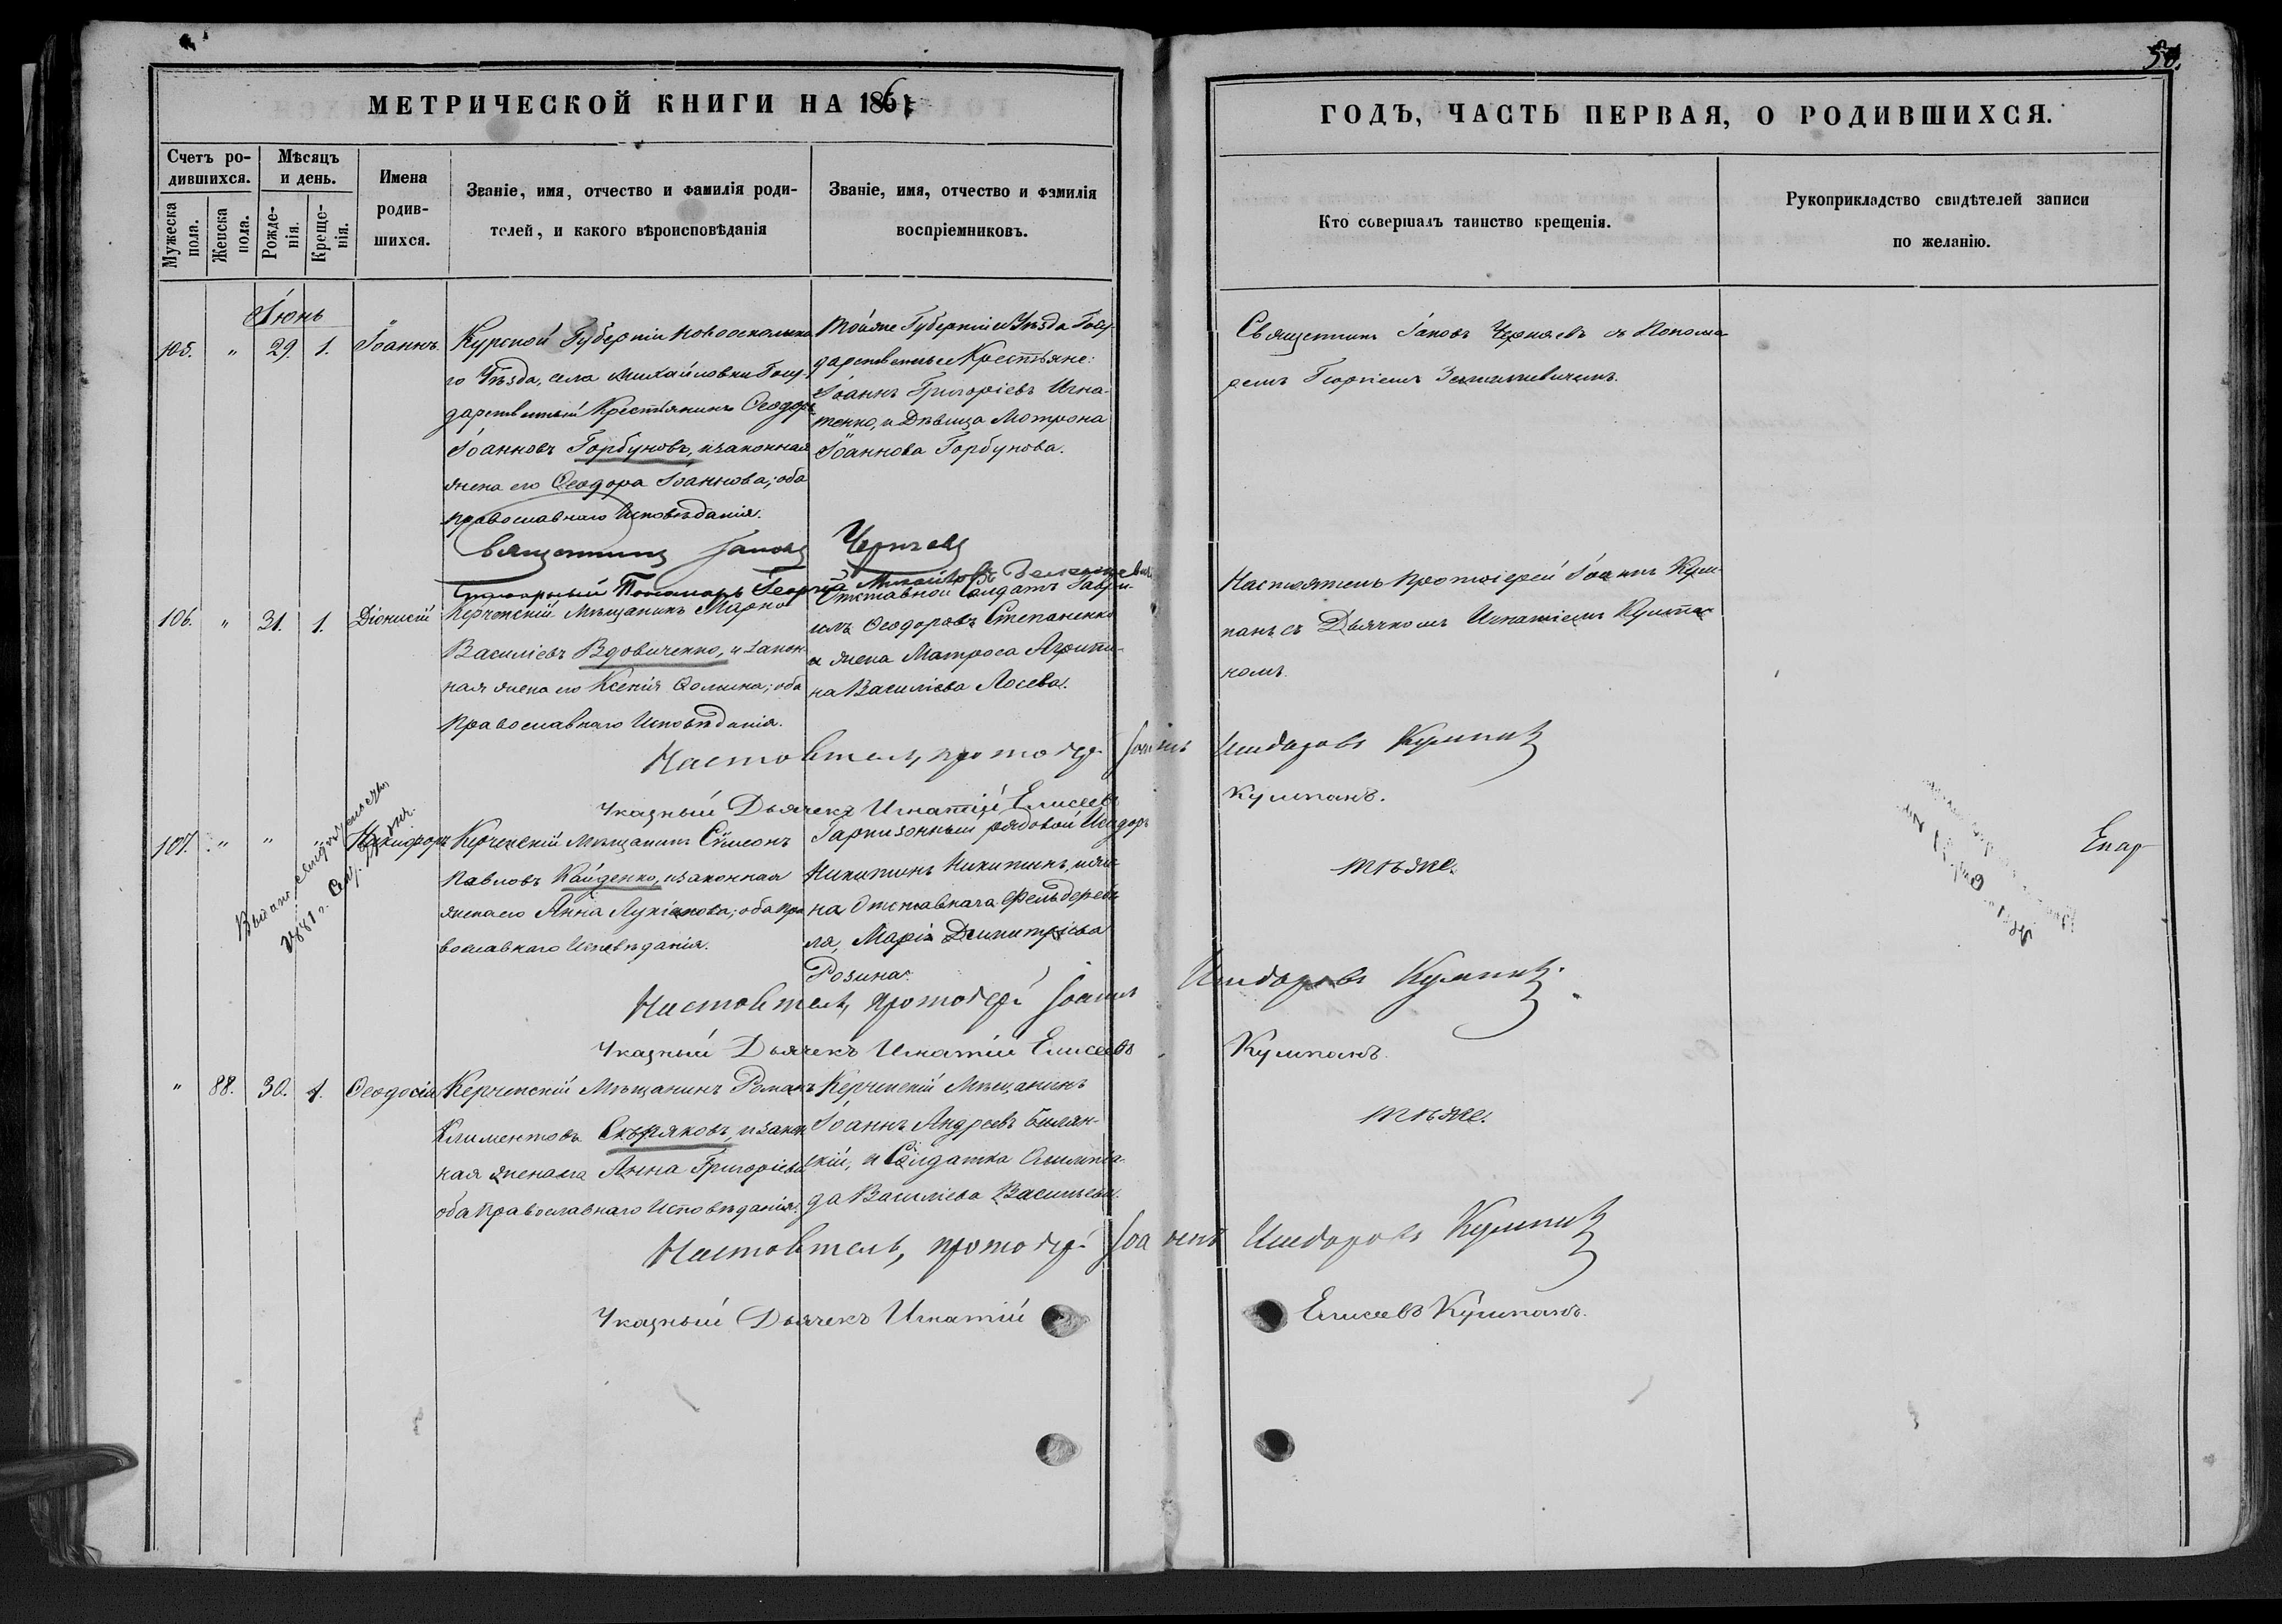 50.
МЕТРИЧЕСКОЙ КНИГИ НА 1861
ГОДЪ, ЧАСТЬ ПЕРВАЯ, О РОДИВШИХСЯ.
Счетъ ро-
дившихся.
Мужеска
пола.
Женска
пола.
Мѣсяцъ
и день.
Рожде-
нія.
Креще-
нія.
Имена
родив-
шихся.
Званіе, имя, отчество и фамилія роди-
телей, и какого вѣроисповѣданія
Званіе, имя, отчество и фамилія
воспріемниковъ.
Кто совершалъ таинство крещенія.
Рукоприкладство свидѣтелей записи
по желанію.
Іюнь
105. " 29. 1. Іоаннъ.
Курской Губерніи Новооскольска
го Уѣзда, села Михайловки Госу-
дарственный Крестьянинъ Ѳеодоръ
Іоанновъ Горбуновъ, изаконная
жена его Ѳеодора Іоаннова; оба
православнаго Исповѣданія.
Тойже Губерніи и Уѣзда Госу-
дарственные Крестьяне:
Іоаннъ Григоріевъ Игна-
тенко, и Дѣвица Матрона
Іоаннова Горбунова.
Священникъ Іаковъ Черняевъ съ Понома
ремъ Георгіемъ
Священникъ Іаковъ Черняевъ
Пономарь Георгій
106. " 31. 1. Діонисій
Керченскій Мѣщанинъ Марко
Василіевъ Вдовиченко, и закон-
ная жена его Ксенія Ѳомина; оба
Православнаго Исповѣданія.
Отставной Солдатъ Гаврі-
илъ Ѳеодоровъ Степаненко
и жена Матроса Агрипи-
на Василіева Лосева.
Настоятель Протоіерей Іоаннъ Кум-
панъ съ Дьячкомъ Игнатіемъ Кумпа-
номъ.
Настоятель, протоіерей Іоаннъ Исидоровъ Кумпанъ
Указный Дьячекъ Игнатій Елисеевъ Кумпанъ.
107. " " " Никифоръ
Выдано свидѣтельство
1881 г.
Керченскій Мѣщанинъ Сѵмеонъ
Павловъ Кайденко, изаконная
жена его Анна Лукіанова; оба Пра
вославнаго Исповѣданія.
Гарнизонный рядовой Исидоръ
Никитинъ Никитинъ, и же-
на Отставнаго Фельдфебе-
ля, Марія Димитріева
Розина.
тѣже.
Епар
Настоятель, протоіерей Іоаннъ Исидоровъ Кумпанъ.
Указный Дьячекъ Игнатій Елисеевъ Кумпанъ.
" 88. 30. 1. Ѳеодосія
Керченскій Мѣщанинъ Романъ
Климентовъ Скъряковъ, изакон
ная жена его Анна Григоріева
оба Православнаго Исповѣданія.
Керченскій Мѣщанинъ
Іоаннъ Андреевъ Билян-
скій, и Солдатка Олимпіа-
да Василіева Васильева.
тѣже.
Настоятель, протоіерей Іоаннъ Исидоровъ Кумпанъ
Указный Дьячекъ Игнатій Елисеевъ Кумпанъ.